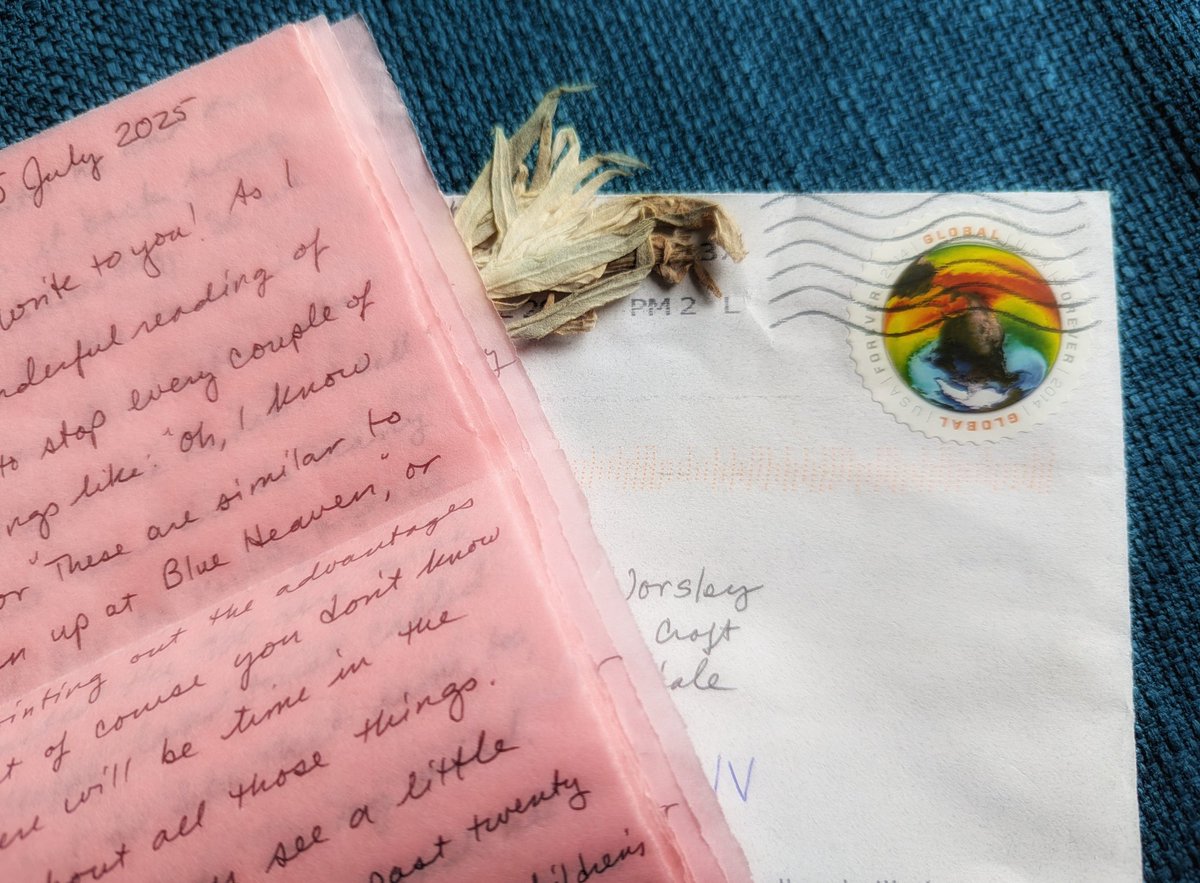 5 July 2025
write to you! As I
nderful reading of
to stop every couple of
ngs like: "Oh, I know
or "These are similar to
n up at Blue Heaven," or
inting out the advantages
t of course you don't know
ere will be time in the
bout all those things.
see a little
past twenty
ildren's
PM 2 L
GLOBAL
FOREVER
USA
2014
GLOBAL
FOREVER
orsley
Croft
dale
IV